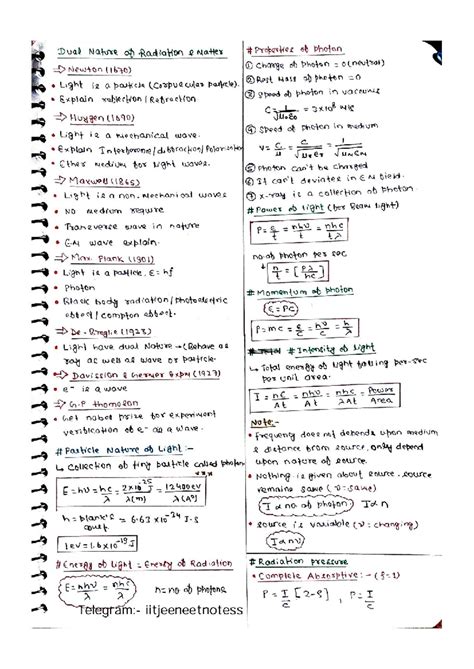 Dual Nature of Radiation & Matter
⇒ Newton (1670)
• Light is a particle (Corpuscular particle).
• Explain reflection/Refraction.
⇒ Huygen (1690)
• Light is a Mechanical wave.
• Explain Interference/diffraction/Polarisation
• Ether medium for light waves.
⇒ Maxwell (1865)
• Light is a non-mechanical waves
• No medium require
• Transverse wave in nature
• E.M wave explain.
⇒ Max. Plank (1901)
• Light is a particle. E = hf
• Photon
• Black body radiation/photoelectric
effect/compton effect.
⇒ De-Broglie (1923)
• Light have dual Nature → (Behave as
ray as well as wave or particle.
⇒ Davission & Germer Expt (1927)
• e⁻ is a wave
⇒ G.P thomson
• Get nobel prize for experiment
verification of e⁻ as a wave.
# Particle Nature of Light :-
↳ Collection of tiny particle called photon
E = hν = hc/λ = 2×10⁻²⁵ J/λ(m) = 12400 eV/λ(A°)
h = plank's const = 6.63 × 10⁻³⁴ J·s
1eV = 1.6×10⁻¹⁹ J
# Energy of Light = Energy of Radiation
E = nhν/λ = nhc/λ n = no of photons
Telegram:- iitjeeneetnotess
# Properties of Photon
① Charge of Photon = 0 (neutral)
② Rest Mass of photon = 0
③ Speed of photon in vacuume
C = 1/√μ₀ε₀ = 3×10⁸ m/s
④ Speed of Photon in medium
v = c/μ = 1/√μ₀εr = 1/√με
⑤ Photon can't be charged
⑥ It can't deviates in E.M field.
⑦ x-ray is a collection of photon.
# Power of light (for Beam Light)
P = E/t = nhν/t = nhc/tλ
no of photon per sec
n/t = [Pλ/hc]
# Momentum of photon
E = PC
P = mc = E/c = hν/c = h/λ
# Intensity of Light
↳ Total energy of light falling per-sec
per unit area.
I = nE/At = nhν/At = nhc/Atλ = Power/Area
Note:-
• frequency does not depends upon medium
& distance from source, only depend
upon nature of source.
• Nothing is given about source. source
remains same (ν = same)
I ∝ no of photon I ∝ n
• source is variable (ν = changing)
I ∝ nν
# Radiation pressure
• Complete Absorptive :- (ρ=1)
P = I/C [2-ρ] , P = I/C